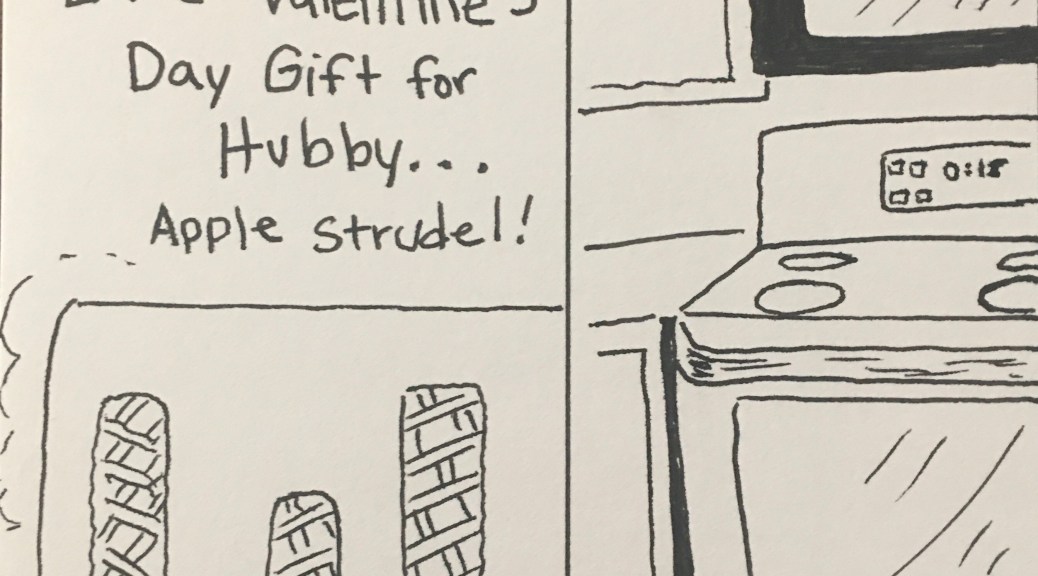 Valentine's
Day Gift for
Hubby...
Apple strudel!
0:18